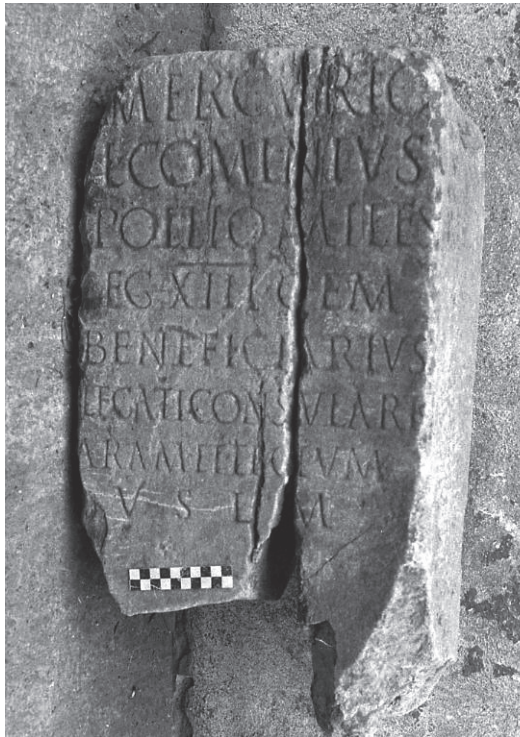 MERCVRIO
L COMINIVS
POLLIO MILES
LEG GEM
BENEFICIARIVS
LEGATI CONSVLARI
ARAM ET LOCVM
V S L M